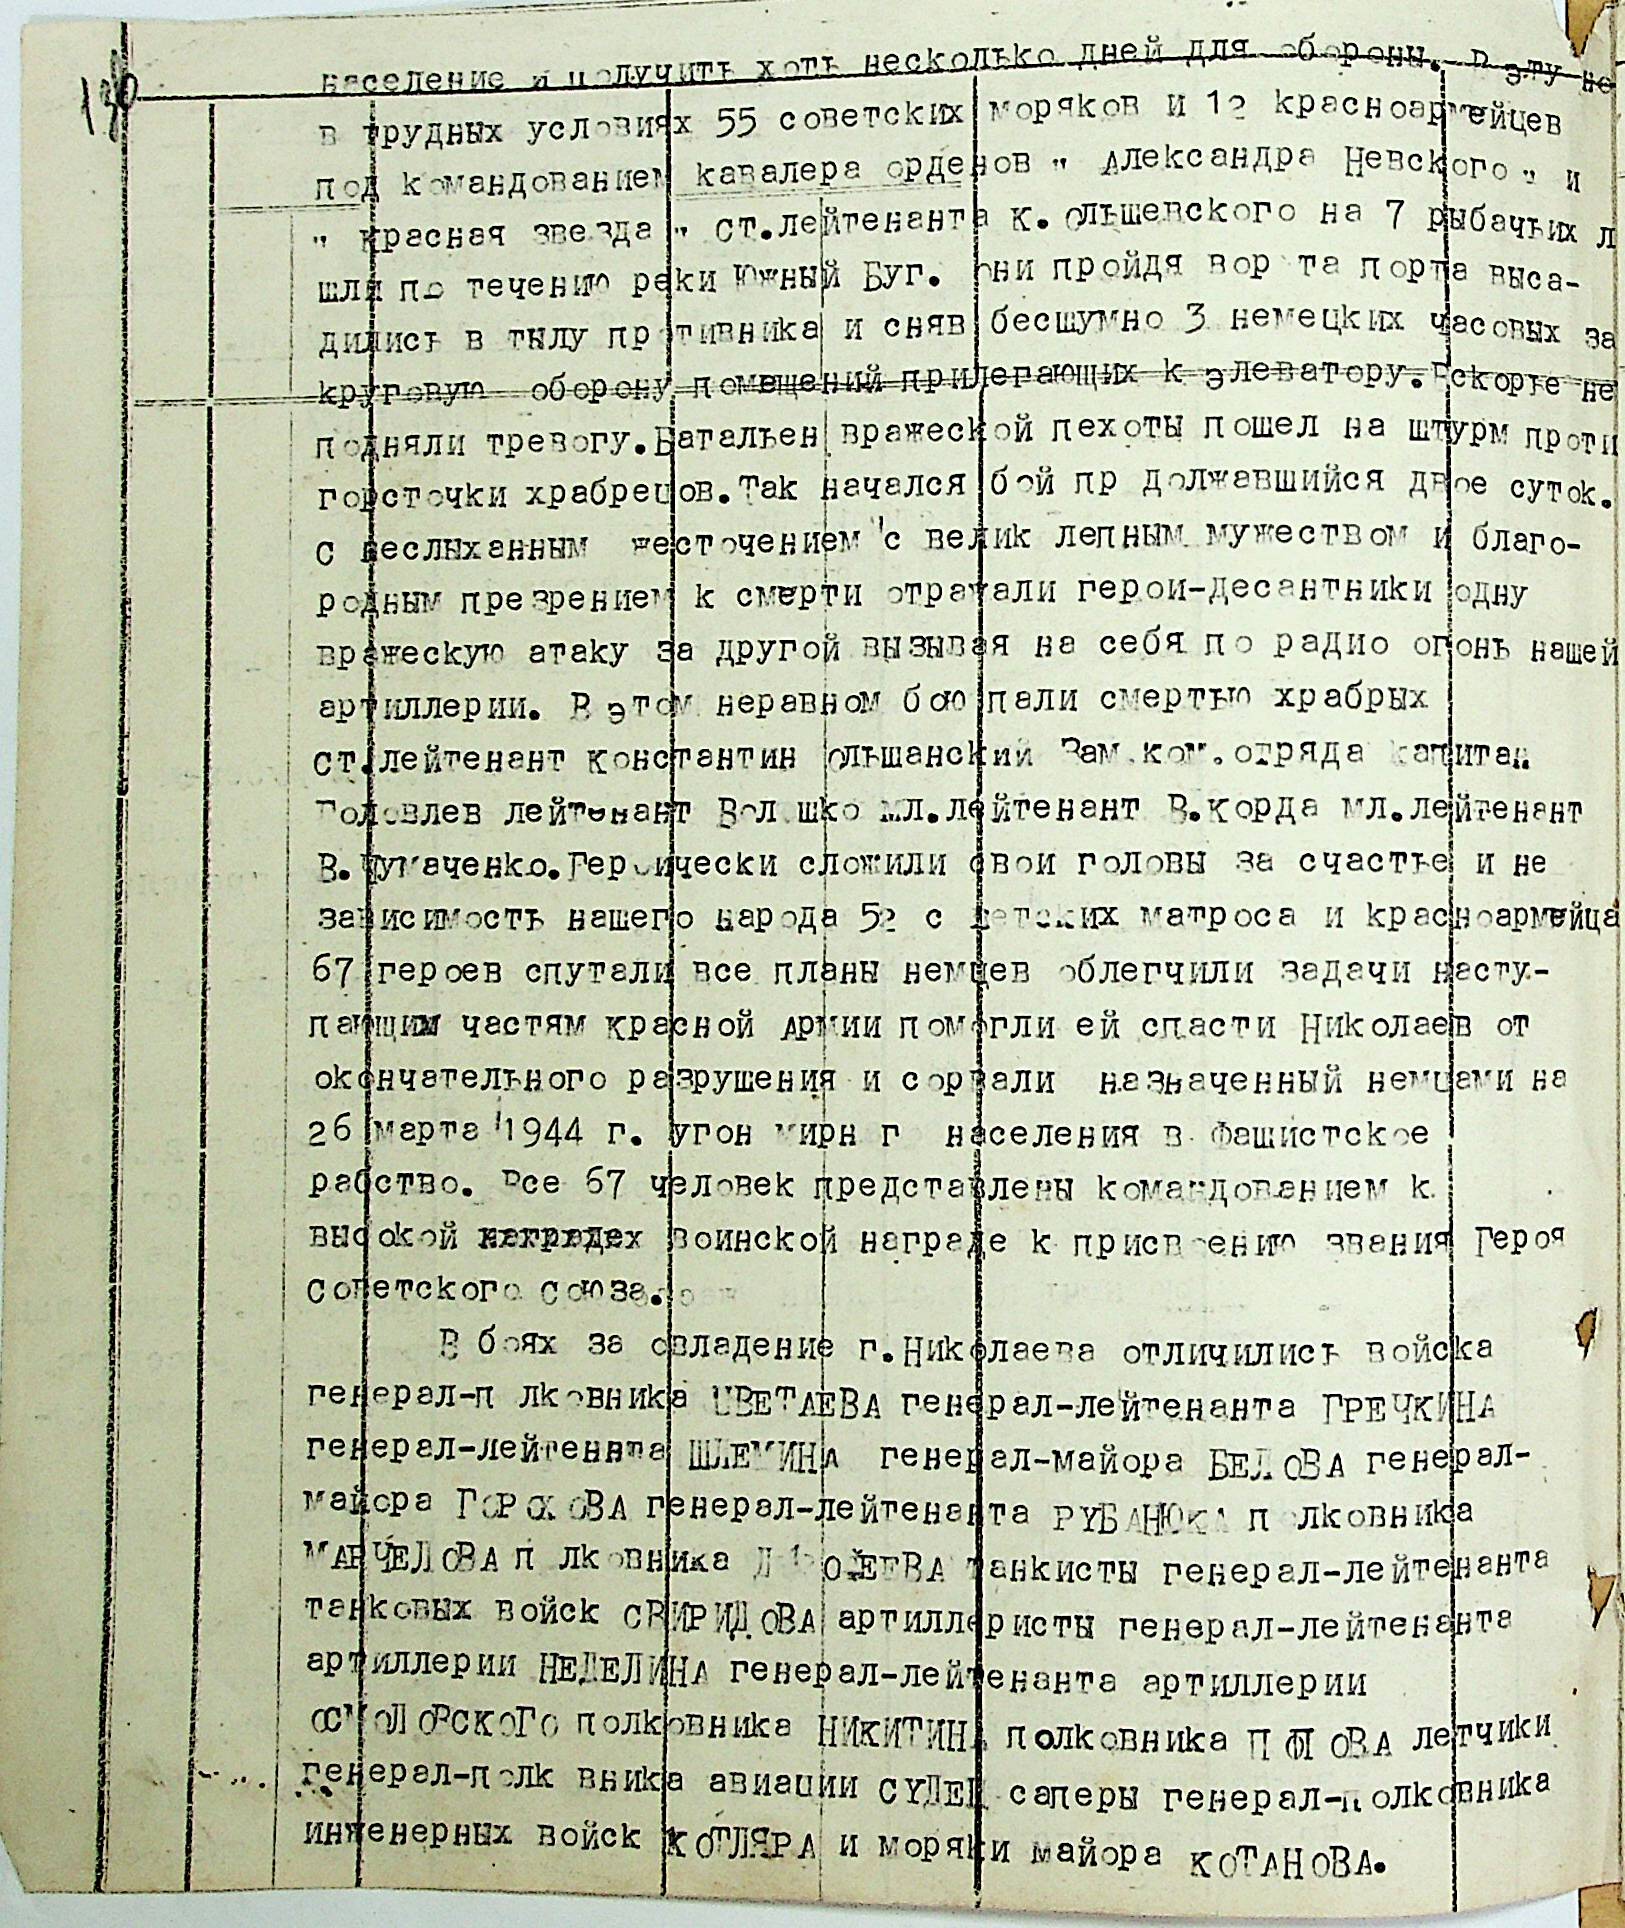 130
население и получить хоть несколько дней для обороны. В эту но
в трудных условиях 55 советских моряков и 12 красноармейцев
под командованием кавалера орденов " Александра Невского " и
" красная звезда " ст.лейтенанта К. Ольшевского на 7 рыбачьих л
шли по течению реки Южный Буг. Они пройдя вор та порта выса-
дились в тылу противника и сняв бесшумно 3 немецких часовых за
круговую оборону помещений прилегающих к элеватору.Вскорье не
подняли тревогу.Батальен вражеской пехоты пошел на штурм проти
горсточки храбрецов.Так начался бой пр должавшийся двое суток.
С неслыханным жесточением с велик лепным мужеством и благо-
родным презрением к смерти отражали герои-десантники одну
вражескую атаку за другой вызывая на себя по радио огонь нашей
артиллерии. В этом неравном бою пали смертью храбрых
ст.лейтенант Константин Ольшанский Зам.ком.отряда капитан
Головлев лейтенант Вол шко мл.лейтенант В.Корда мл.лейтенант
В.Чумаченко.Героически сложили свои головы за счастье и не
зависимость нашего народа 52 с ветских матроса и красноармейца
67 героев спутали все планы немцев облегчили задачи насту-
пающим частям красной армии помогли ей спасти Николаев от
окончательного разрушения и сорвали назначенный немцами на
26 марта 1944 г. угон мирн г населения в фашистское
рабство. Все 67 человек представлены командованием к
высокой наградех воинской награде к присвоению звания Героя
Советского союза.
В боях за овладение г.Николаева отличились войска
генерал-п лковника ЦВЕТАЕВА генерал-лейтенанта ГРЕЧКИНА
генерал-лейтенвта ШЛЕМИНА генерал-майора БЕЛОВА генерал-
майора ГОРОХОВА генерал-лейтенанта РУБАНЮКА п лковника
МАРЧЕЛОВА п лковника танкисты генерал-лейтенанта
танковых войск СВИРИДОВА артиллеристы генерал-лейтенанта
артиллерии НЕДЕЛИНА генерал-лейтенанта артиллерии
полковника НИКИТИНА полковника летчики
генерал-полк вника авиации СУДЕЦ саперы генерал-полковника
инженерных войск КОТЛЯРА и моряки майора КОТАНОВА.